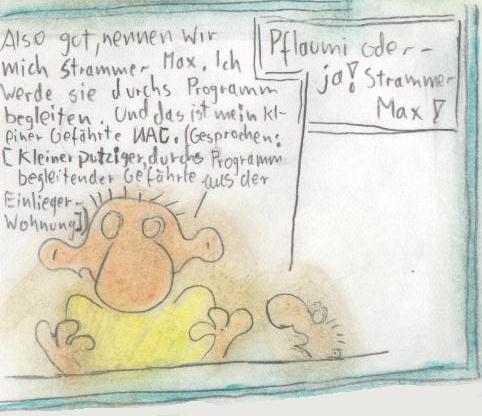 Also gut, nennen wir
mich Strammer Max. Ich
werde sie durchs Programm
begleiten. Und das ist mein kl-
einer Gefährte UAC. (Gesprochen:
[Kleiner putziger, durchs Programm
begleitender Gefährte aus der
Einlieger-
Wohnung])
Pflaumi oder--
ja! Strammer
Max!